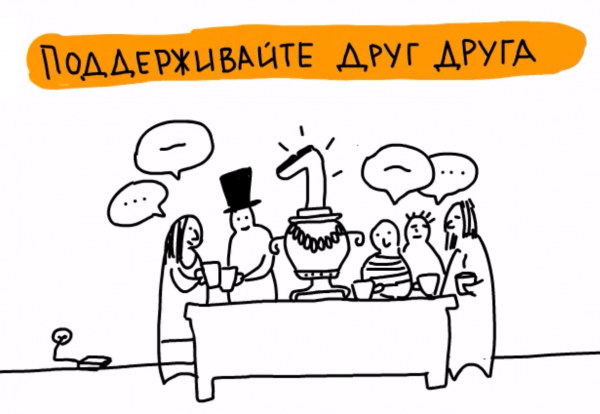 ПОДДЕРЖИВАЙТЕ ДРУГ ДРУГА
1